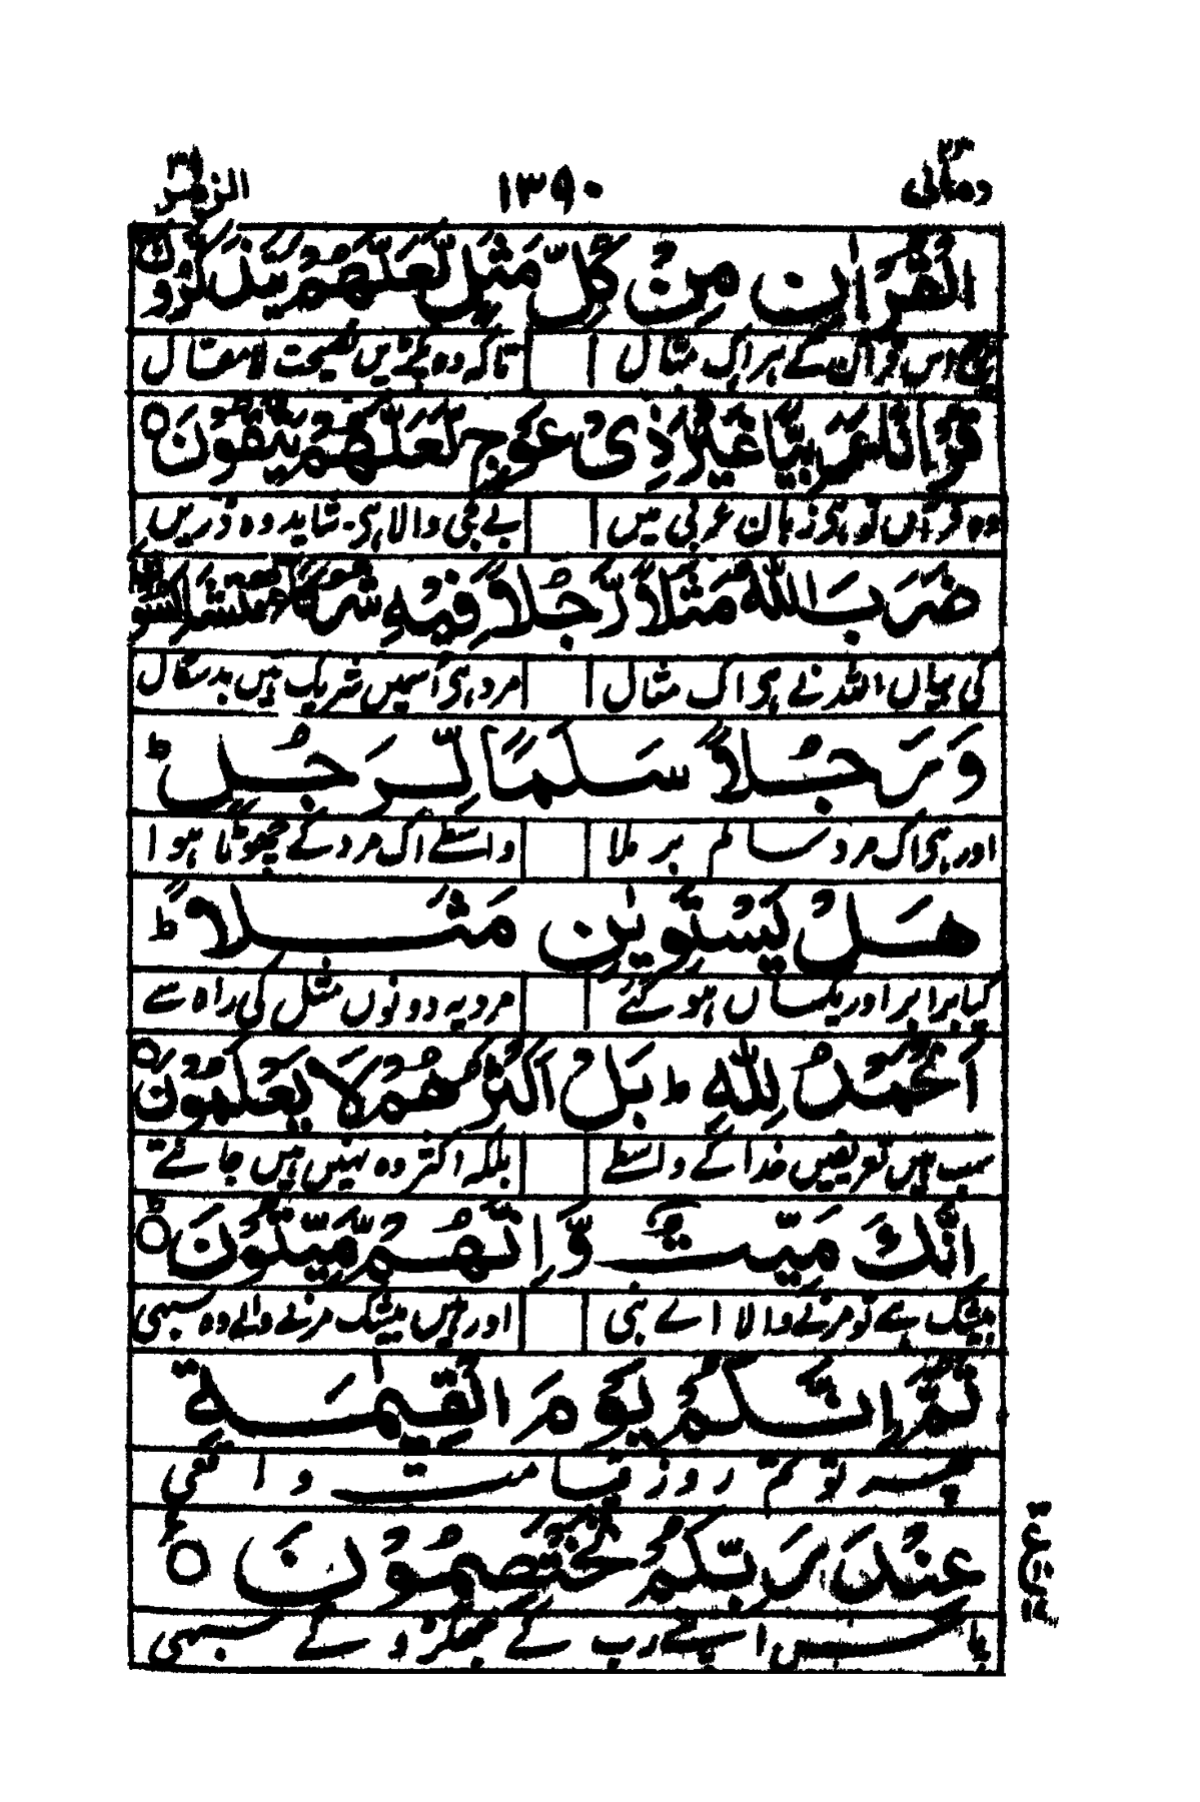 ومالی ٢٣
١٣٩٠
الزمر ٣٩
الْقُرْاٰنِ مِنْ كُلِّ مَثَلٍ لَّعَلَّهُمْ يَتَذَكَّرُوْنَ
اس قرآن کے ہر اک مثال تاکہ وہ پکڑیں نصیحت لا مقال
قُرْاٰنًا عَرَبِيًّا غَيْرَ ذِىْ عِوَجٍ لَّعَلَّهُمْ يَتَّقُوْنَ ۝
وہ قرآں تو ہی زبان عربی میں بے کجی والا ہی شاید وہ ڈریں
ضَرَبَ اللّٰهُ مَثَلًا رَّجُلًا فِيْهِ شُرَكَآءُ مُتَشٰكِسُوْنَ
کی بیاں اللہ نے ہی اک مثال مرد ہی اسمیں شریک ہیں بدسگال
وَرَجُلًا سَلَمًا لِّرَجُلٍ ؕ
اور ہی اک مرد سالم بر ملا واسطے اک مرد کے چھوٹا ہوا
هَلْ يَسْتَوِيٰنِ مَثَلًا ؕ
کیا برابر اور یکساں ہو گئے مرد یہ دونوں مثل کی راہ سے
اَلْحَمْدُ لِلّٰهِ ؕ بَلْ اَكْثَرُهُمْ لَا يَعْلَمُوْنَ ۝
سب ہیں تعریفیں خدا کے واسطے بلکہ اکثر وہ نہیں ہیں جانتے
اِنَّكَ مَيِّتٌ وَّاِنَّهُمْ مَّيِّتُوْنَ ۝
بیشک ہے تو مرنے والا اے نبی اور ہیں بیشک مرنے والے وہ سبھی
ثُمَّ اِنَّكُمْ يَوْمَ الْقِيٰمَةِ
پھر تم روز قیامت واقعی
عِنْدَ رَبِّكُمْ تَخْتَصِمُوْنَ ۝
پاس اپنے رب کے جھگڑو گے سبھی